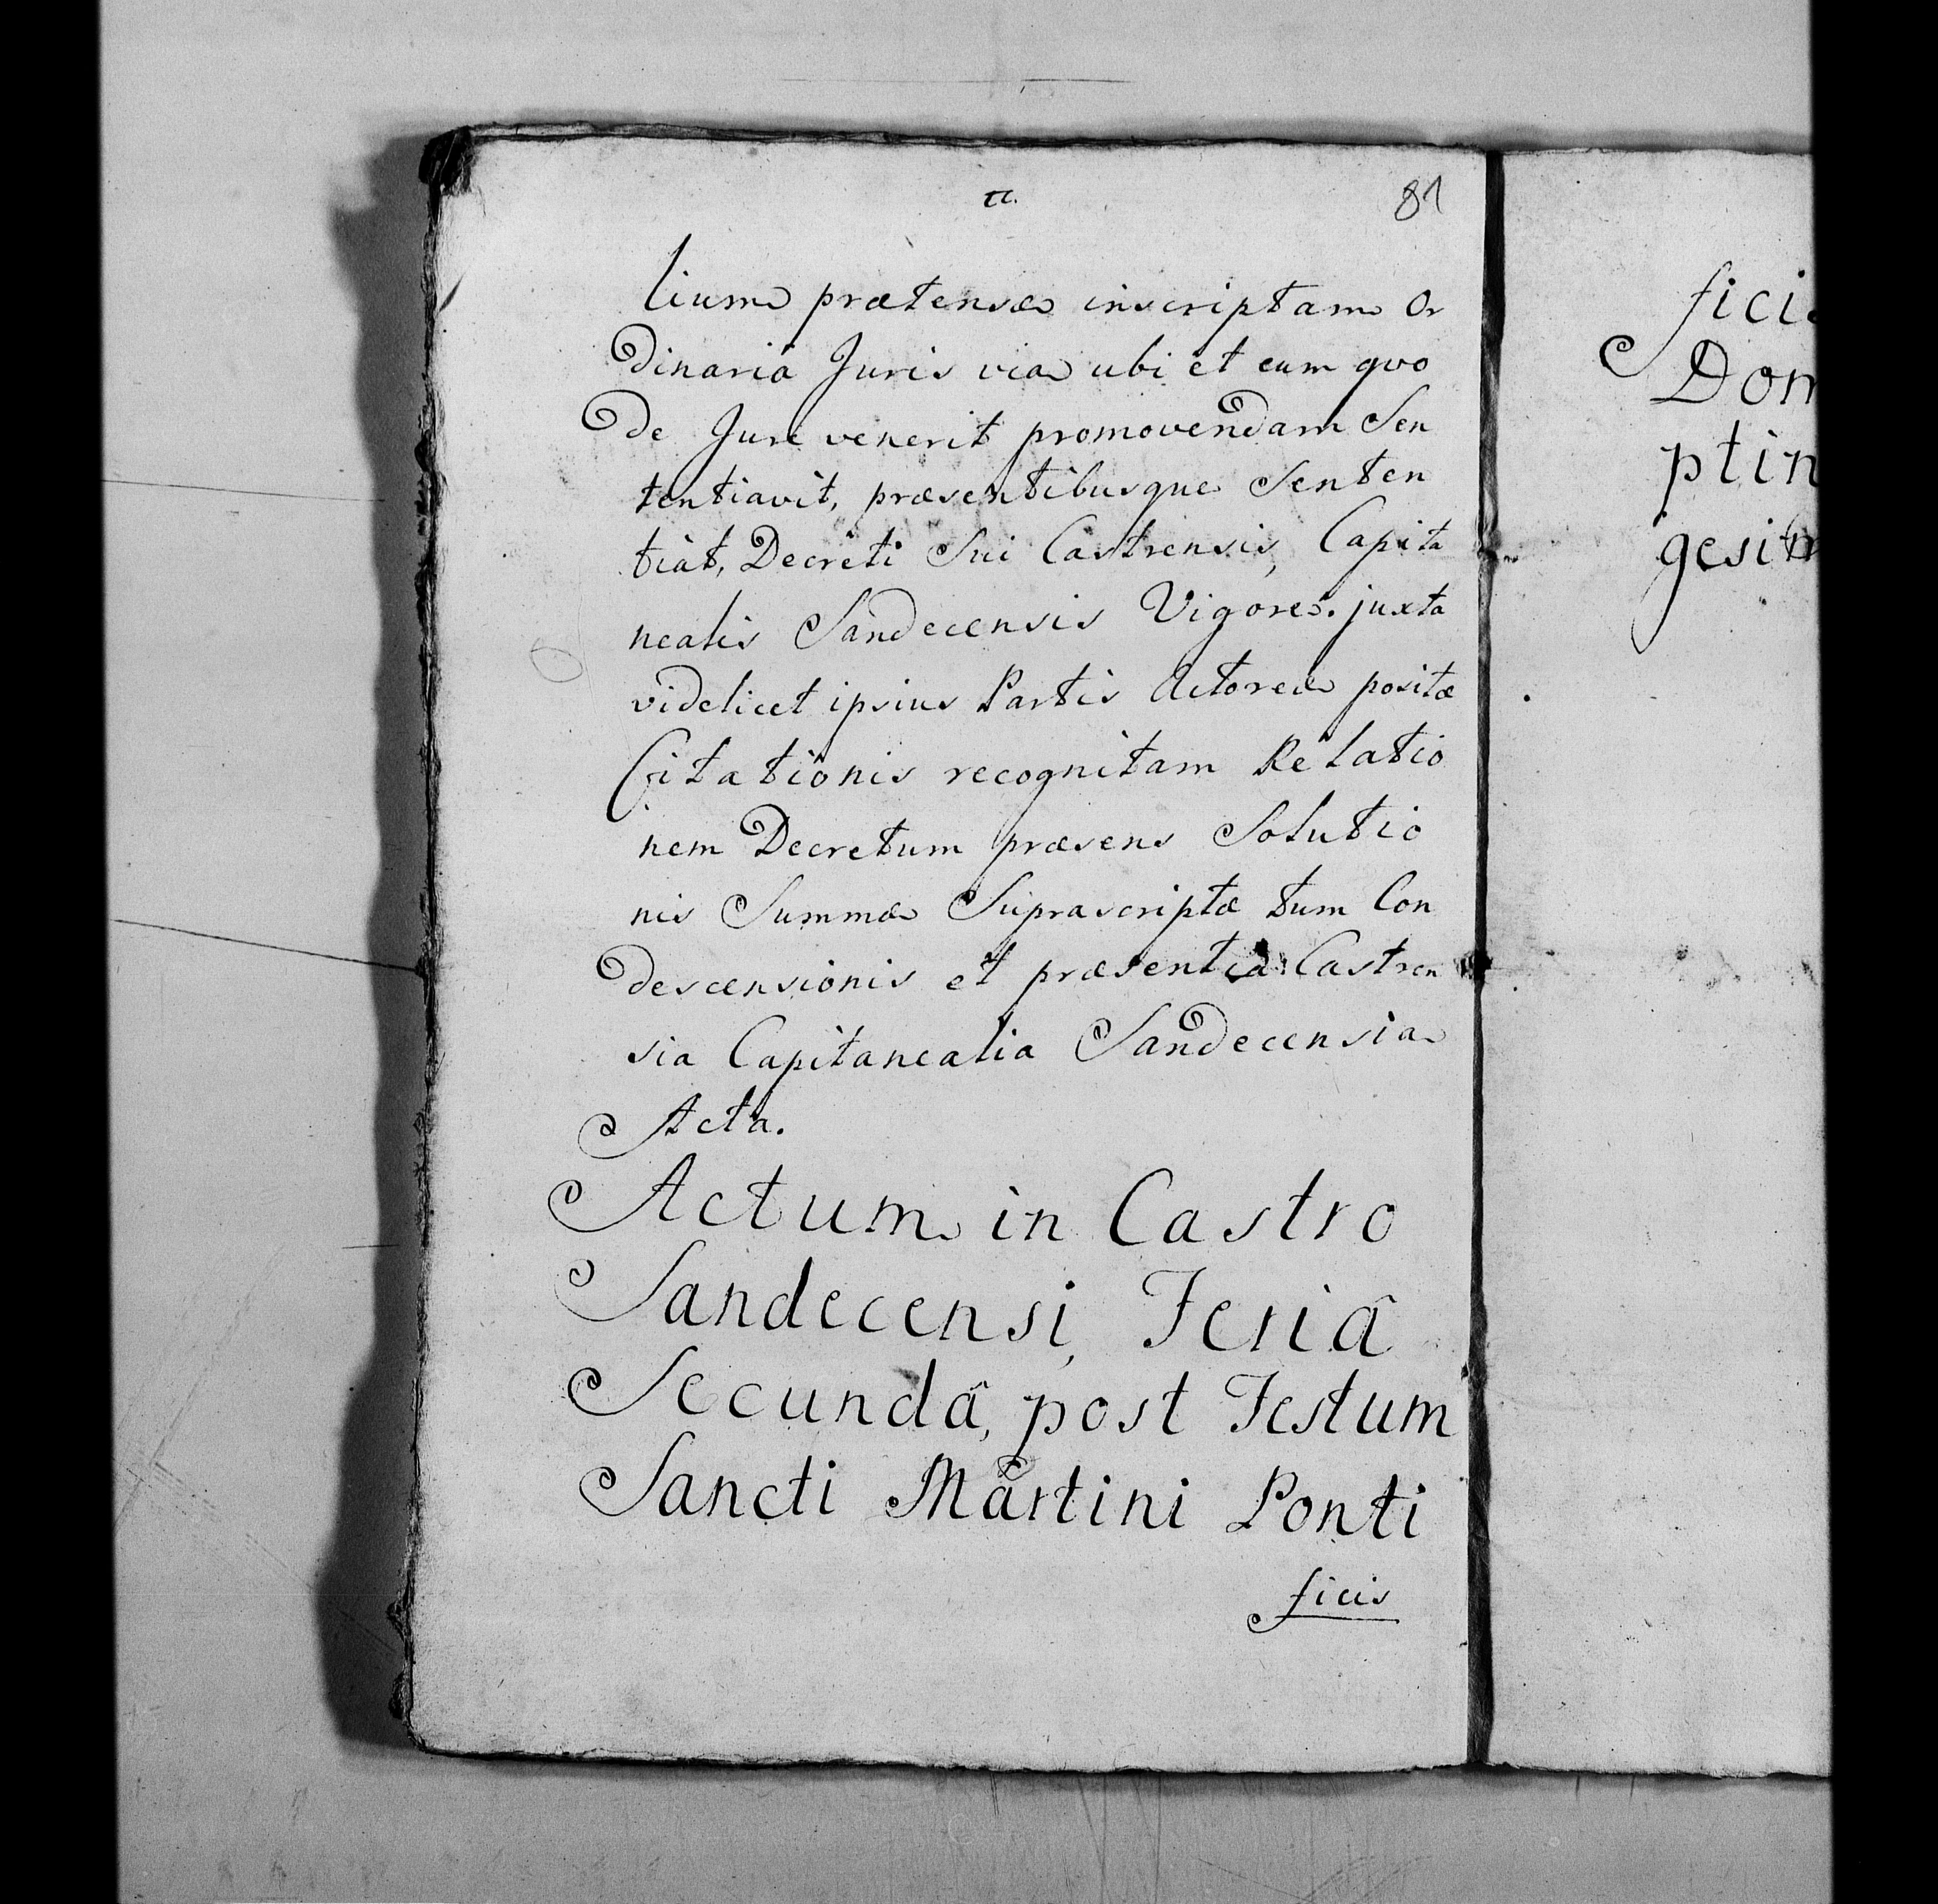 81
lium prætensæ inscriptam Or
dinaria Juris via ubi et cum qvo
De Jure venerit promovendam Sen
tentiavit, præsentibusque Senten
tiat, Decreti Sui Castrensis, Capita
nealis Sandecensis Vigore. juxta
videlicet ipsius Partis Actoreæ positæ
Citationis recognitam Relatio
nem Decretum præsens Solutio
nis Summæ Suprascriptæ tum Con
descensionis et præsentia Castren
sia Capitanealia Sandecensia
Acta.
Actum in Castro
Sandecensi, Feriâ
Secundâ, post Festum
Sancti Martini Ponti
ficis
fici
Dom
ptin
gesim